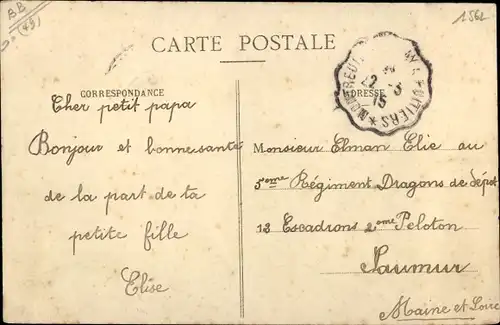 BB
(49)
1562
CARTE POSTALE
CORRESPONDANCE
ADRESSE
22 - 5
15
Cher petit papa
Bonjour et bonne santé
de la part de ta
petite fille
Elise
Monsieur Elman Elie au
5eme Régiment Dragons de dépot
13 Escadrons 2eme Peloton
Saumur
Maine et Loire